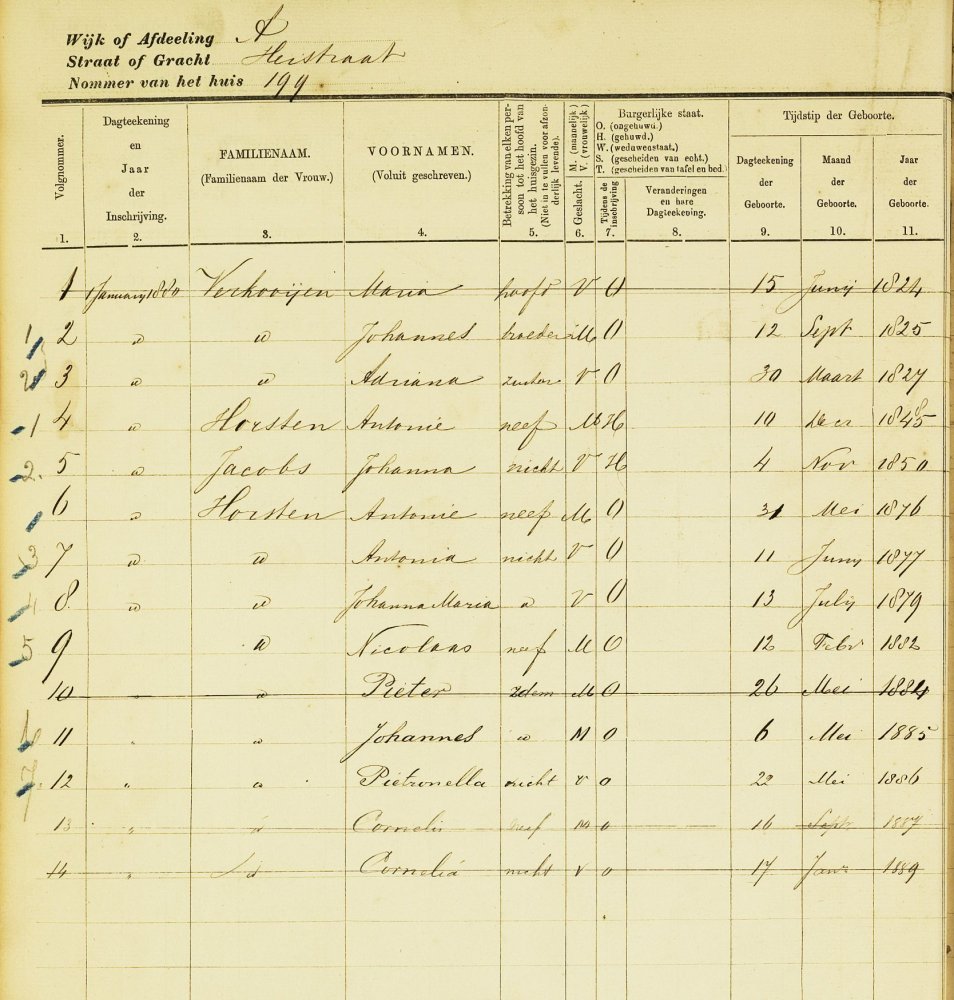 Wijk of Afdeeling A
Straat of Gracht Heistraat
Nommer van het huis 199
Volgnommer. 1.
Dagteekening en Jaar der Inschrijving. 2.
FAMILIENAAM. (Familienaam der Vrouw.) 3.
VOORNAMEN. (Voluit geschreven.) 4.
Betrekking van elken persoon tot het hoofd van het huisgezin. (Niet in te vullen voor afzonderlijk levende). 5.
Geslacht. M. (mannelijk) V. (vrouwelijk) 6.
Burgerlijke staat.
O. (ongehuwd.)
H. (gehuwd.)
W. (weduwenstaat.)
S. (gescheiden van echt.)
T. (gescheiden van tafel en bed.)
Tijdens de inschrijving 7.
Veranderingen en hare Dagteekening. 8.
Tijdstip der Geboorte.
Dagteekening der Geboorte. 9.
Maand der Geboorte. 10.
Jaar der Geboorte. 11.
1 1 January 1880 Verhooijen Maria hoofd V O 15 Junij 1824
1 2 " " Johannes broeder M O 12 Sept 1825
2 3 " " Adriana zuster V O 30 Maart 1827
1 4 " Horsten Antonie neef M H 10 Decr 1848
2. 5 " Jacobs Johanna nicht V H 4 Nov 1850
6 " Horsten Antonie neef M O 31 Mei 1876
3 7 " " Antonia nicht V O 11 Juny 1877
4 8 " " Johanna Maria " V O 13 Julij 1879
5 9 " Nicolaas neef M O 12 Febr 1882
10 " " Pieter idem M O 26 Mei 1884
6 11 " " Johannes " M O 6 Mei 1885
7. 12 " " Pietronella nicht V O 22 Mei 1886
13 " " Cornelis neef M O 16 Sept 1887
14 " " Cornelia nicht V O 17 Janr 1889